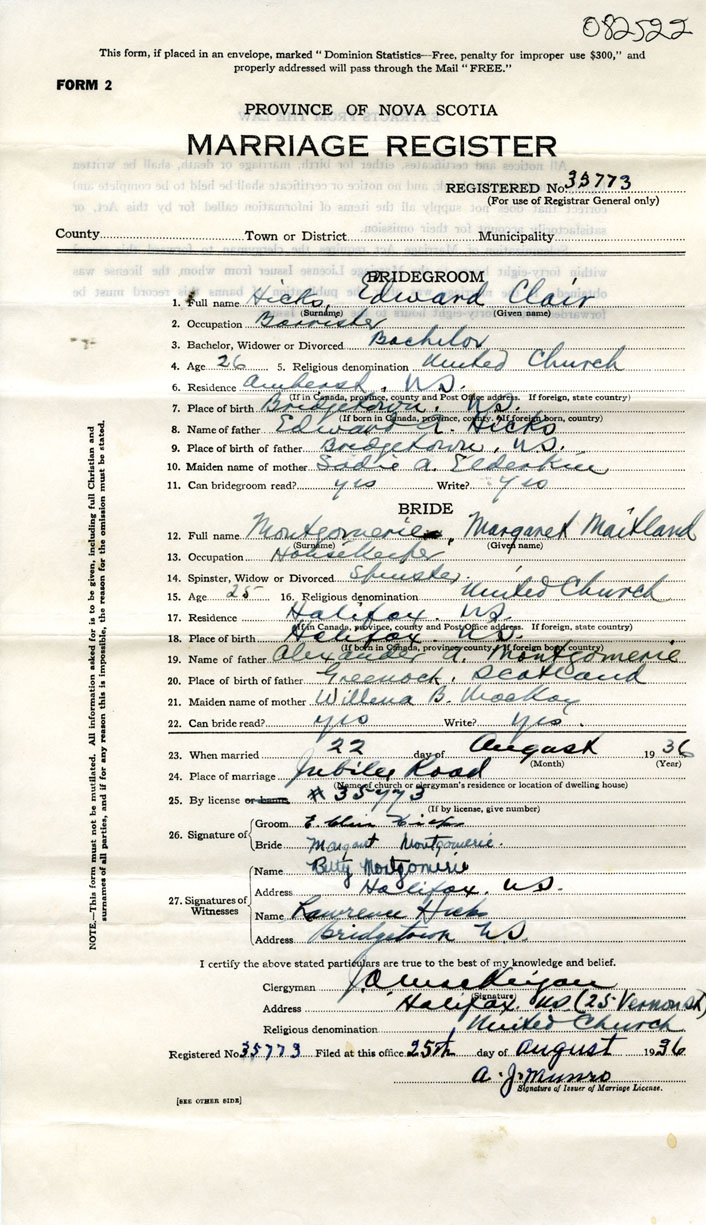 082522
This form, if placed in an envelope, marked "Dominion Statistics—Free, penalty for improper use $300," and
properly addressed will pass through the Mail "FREE."
FORM 2
PROVINCE OF NOVA SCOTIA
MARRIAGE REGISTER
REGISTERED No. 35773
(For use of Registrar General only)
County Town or District Municipality
BRIDEGROOM
1. Full name Hicks, Edward Clair
(Surname) (Given name)
2. Occupation Barrister
3. Bachelor, Widower or Divorced Bachelor
4. Age 26 5. Religious denomination United Church
6. Residence Amherst, N.S.
(If in Canada, province, county and Post Office address. If foreign, state country)
7. Place of birth Bridgetown, N.S.
(If born in Canada, province, county. If foreign born, country)
8. Name of father Edward Hicks
9. Place of birth of father Bridgetown, N.S.
10. Maiden name of mother Sadie A. Elderkin
11. Can bridegroom read? yes Write? yes
BRIDE
12. Full name Montgomerie, Margaret Maitland
(Surname) (Given name)
13. Occupation Housekeeper
14. Spinster, Widow or Divorced Spinster
15. Age 25 16. Religious denomination United Church
17. Residence Halifax, N.S.
(If in Canada, province, county and Post Office address. If foreign, state country)
18. Place of birth Halifax, N.S.
(If born in Canada, province, county. If foreign born, country)
19. Name of father Alexander Montgomerie
20. Place of birth of father Greenock, Scotland
21. Maiden name of mother Willena B. MacKay
22. Can bride read? yes Write? yes.
23. When married 22 day of August 1936
(Month) (Year)
24. Place of marriage Jubilee Road
(Name of church or clergyman's residence or location of dwelling house)
25. By license or banns #35773
(If by license, give number)
26. Signature of Groom E. Clair Hicks
Bride Margaret Montgomerie.
27. Signatures of Witnesses
Name Betty Montgomerie
Address Halifax, N.S.
Name Lawrence Hicks
Address Bridgetown N.S.
I certify the above stated particulars are true to the best of my knowledge and belief.
Clergyman
(Signature)
Address Halifax, N.S. (25 Vernon St)
Religious denomination United Church
Registered No. 35773 Filed at this office 25th day of August 1936
A. J. Munro
Signature of Issuer of Marriage License.
[SEE OTHER SIDE]
NOTE.—This form must not be mutilated. All information asked for is to be given, including full Christian and
surnames of all parties, and if for any reason this is impossible, the reason for the omission must be stated.